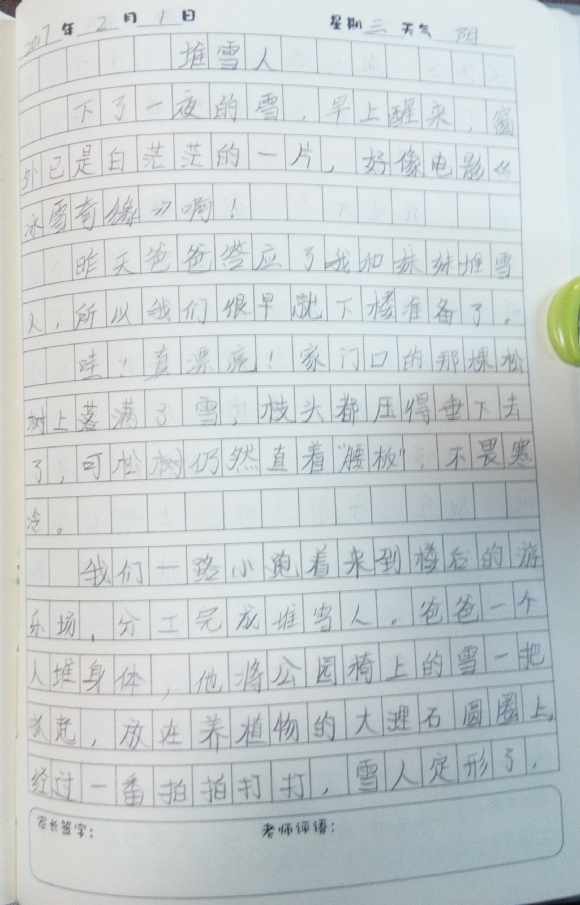 2017年2月1日 星期三 天气 阴
堆雪人
下了一夜的雪，早上醒来，窗
外已是白茫茫的一片，好像电影《
冰雪奇缘》啊！
昨天爸爸答应了我和妹妹堆雪
人，所以我们很早就下楼准备了。
哇！真漂亮！家门口的那棵松
树上落满了雪，枝头都压得垂下去
了，可松树仍然直着“腰板”，不畏寒
冷。
我们一路小跑着来到楼后的游
乐场，分工完成堆雪人。爸爸一个
人堆身体，他将公园椅上的雪一把
抓起，放在养植物的大理石圆圈上，
经过一番拍拍打打，雪人定形了，
家长签字： 老师评语：